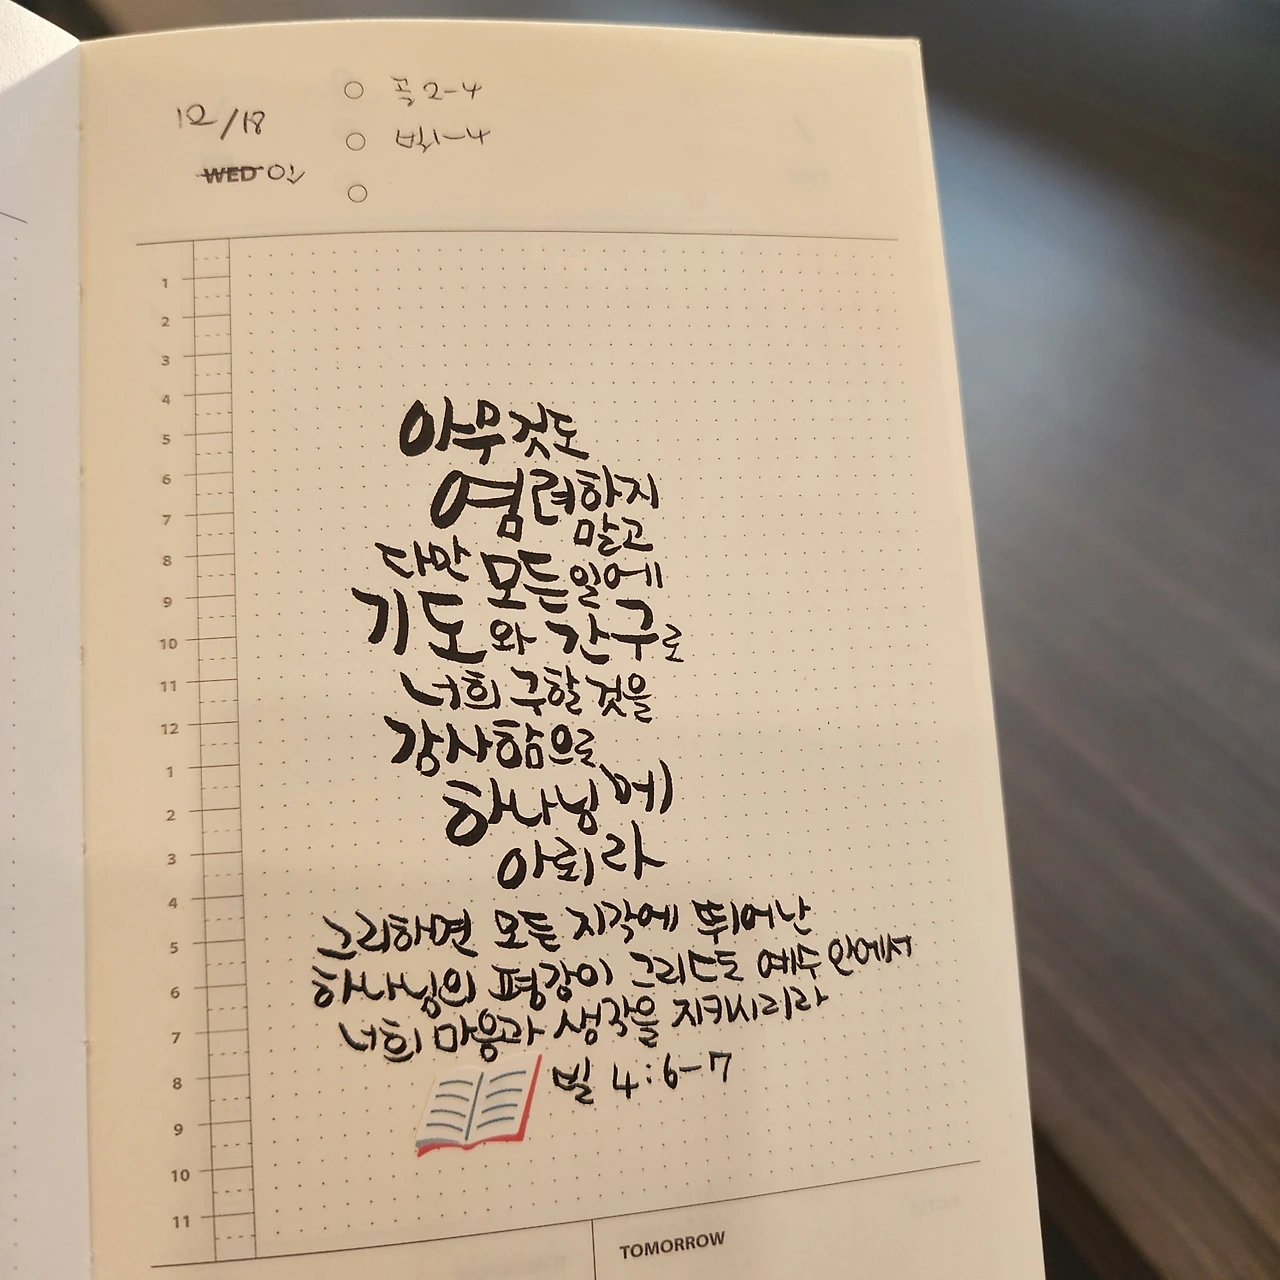 10/18
WED 일
골 2-4
빌 1-4
1
2
3
4
5
6
7
8
9
10
11
12
1
2
3
4
5
6
7
8
9
10
11
아무것도
염려하지
말고
다만 모든 일에
기도와 간구로
너희 구할 것을
감사함으로
하나님께
아뢰라
그리하면 모든 지각에 뛰어난
하나님의 평강이 그리스도 예수 안에서
너희 마음과 생각을 지키시리라
빌 4:6-7
TOMORROW